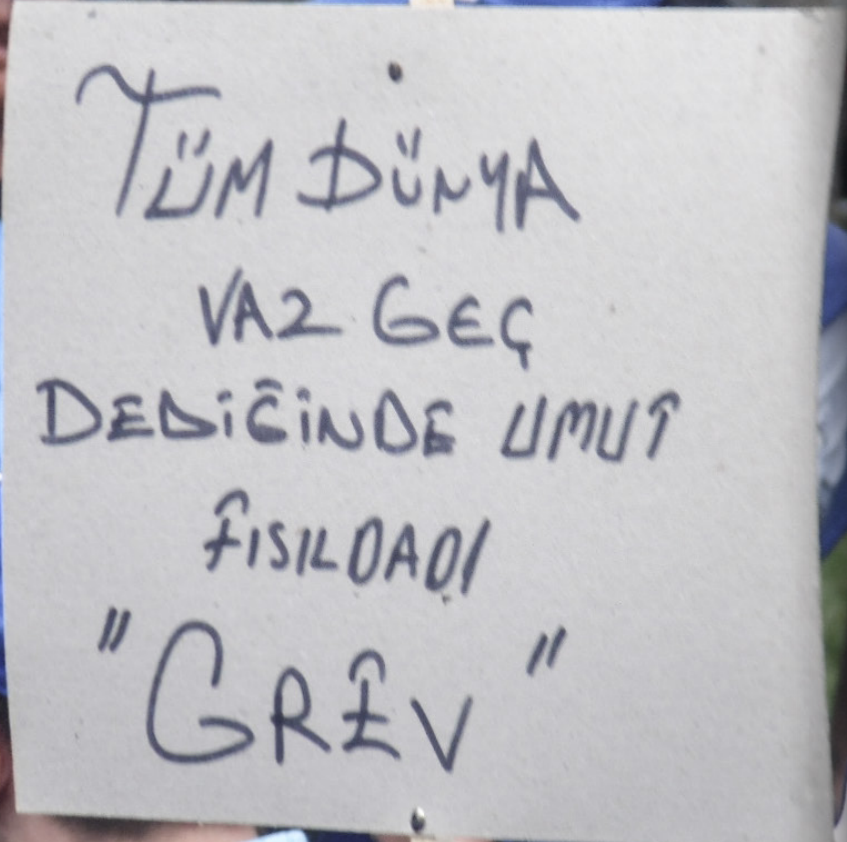 TÜM DÜNYA
VAZ GEÇ
DEDİĞİNDE UMUT
FISILDADI
"GREV"